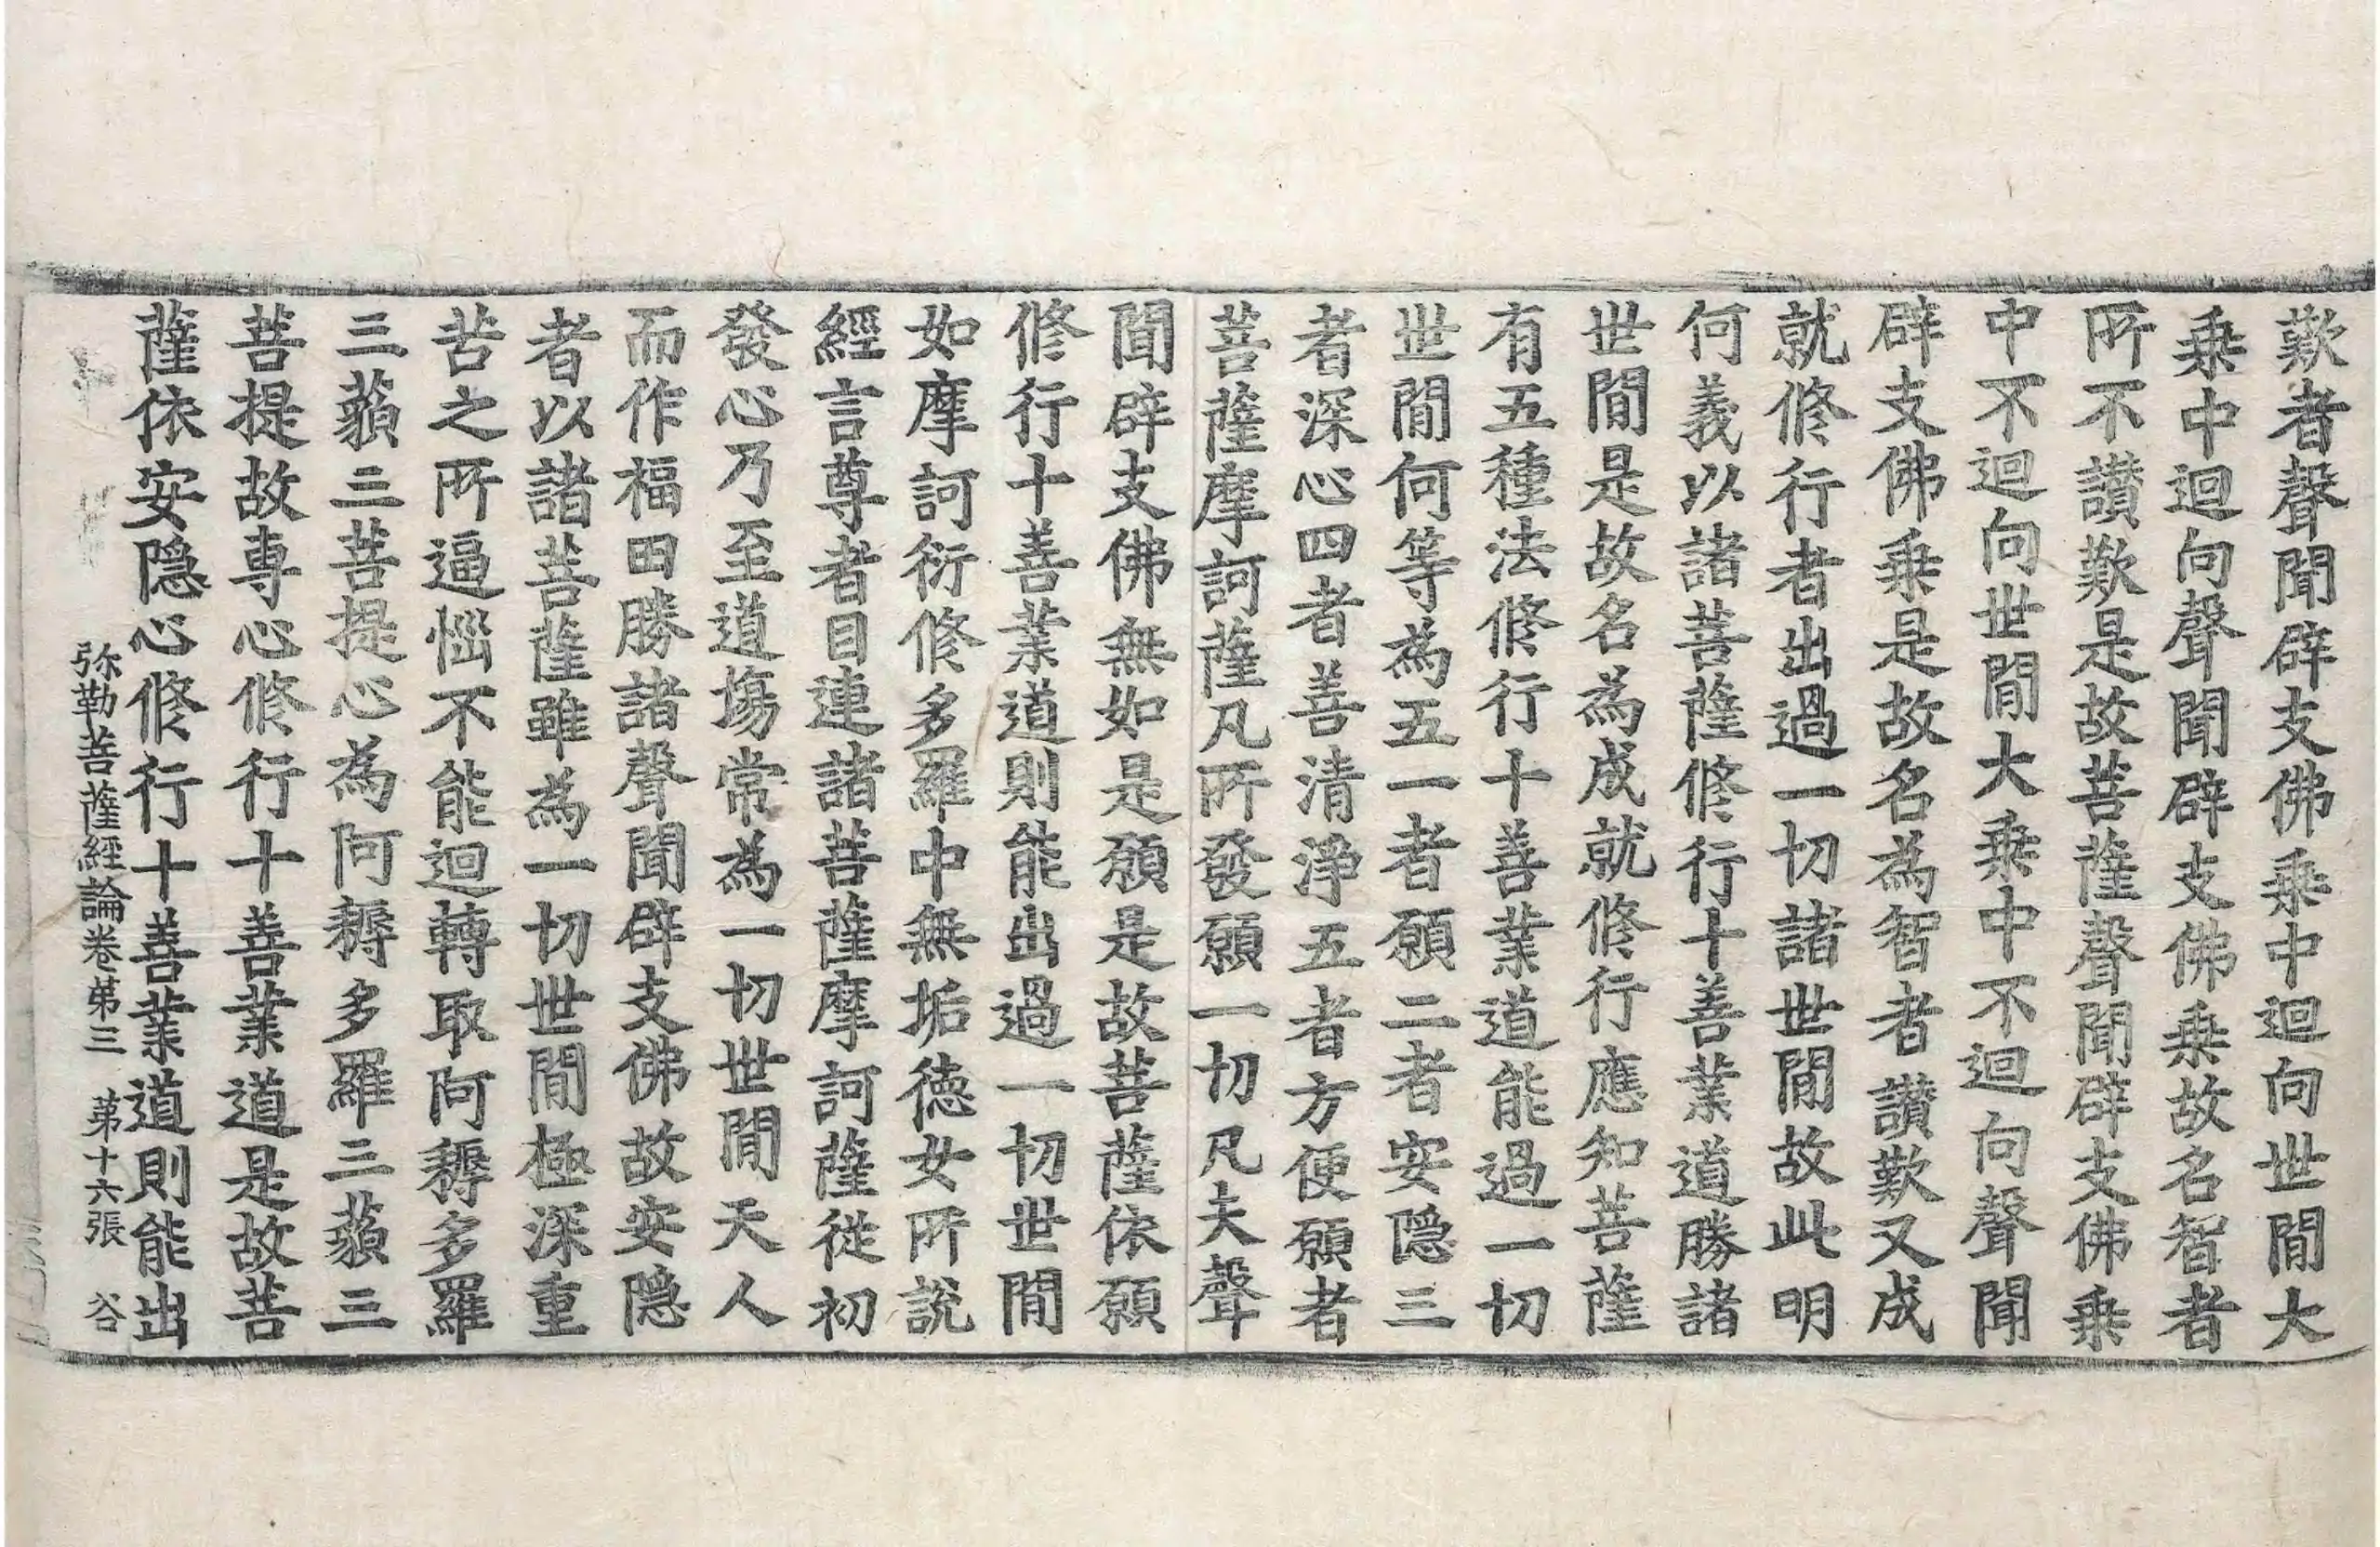 歎者聲聞辟支佛乗中迴向世閒大
乗中迴向聲聞辟支佛乗故名智者
所不讃歎是故菩薩聲聞辟支佛乗
中不迴向世閒大乗中不迴向聲聞
辟支佛乗是故名為智者讃歎又成
就修行者出過一切諸世閒故此明
何義以諸菩薩修行十善業道勝諸
世閒是故名為成就修行應知菩薩
有五種法修行十善業道能過一切
世閒何等為五一者願二者安隱三
者深心四者善清淨五者方便願者
菩薩摩訶薩凡所發願一切凡夫聲
聞辟支佛無如是願是故菩薩依願
修行十善業道則能出過一切世閒
如摩訶衍修多羅中無垢德女所說
經言尊者目連諸菩薩摩訶薩從初
發心乃至道場常為一切世閒天人
而作福田勝諸聲聞辟支佛故安隱
者以諸菩薩雖為一切世閒極深重
苦之所逼惱不能迴轉取阿耨多羅
三藐三菩提心為阿耨多羅三藐三
菩提故専心修行十善業道是故菩
薩依安隱心修行十善業道則能出
弥勒菩薩經論卷苐三　苐十六張